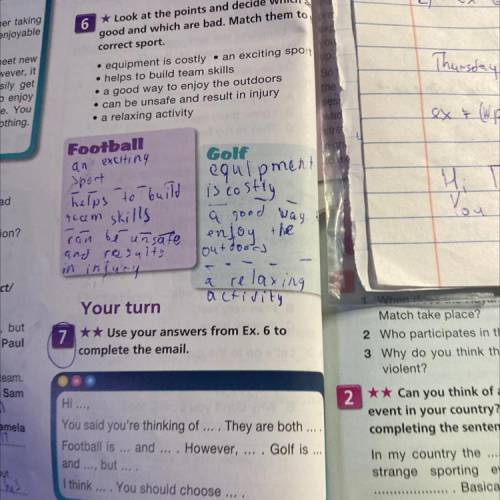 er taking
enjoyable
meet new
wever, it
sily get
o enjoy
e. You
othing.
ad
ion?
ct/
, but
Paul
team.
Sam
amela
out
6 ★ Look at the points and decide which a
good and which are bad. Match them to
correct sport.
• equipment is costly • an exciting sport
• helps to build team skills
• a good way to enjoy the outdoors
• can be unsafe and result in injury
• a relaxing activity
Football
an exciting
sport
helps to build
team skills
can be unsafe
and results
in injury
Golf
equipment
is costly
a good way
enjoy the
outdoors
a relaxing
activity
Your turn
7 ★★ Use your answers from Ex. 6 to
complete the email.
Hi ...,
You said you're thinking of ... . They are both ... .
Football is ... and ... . However, ... . Golf is ...
and ..., but ... .
I think ... . You should choose ... .
Thursday
Hi
You
1
Match take place?
2 Who participates in th
3 Why do you think th
violent?
2 ★★ Can you think of a
event in your country?
completing the senten
In my country the ....
strange sporting ev
.................... Basica